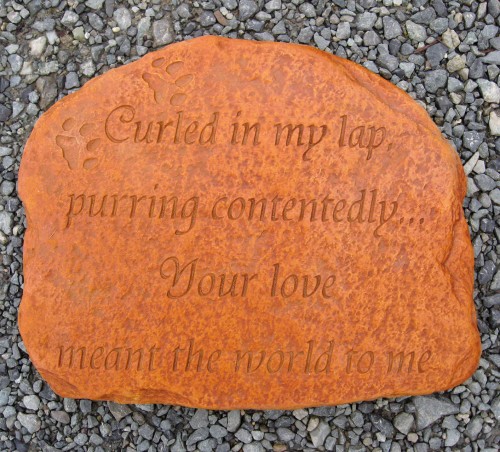 Curled in my lap,
purring contentedly...
Your love
meant the world to me